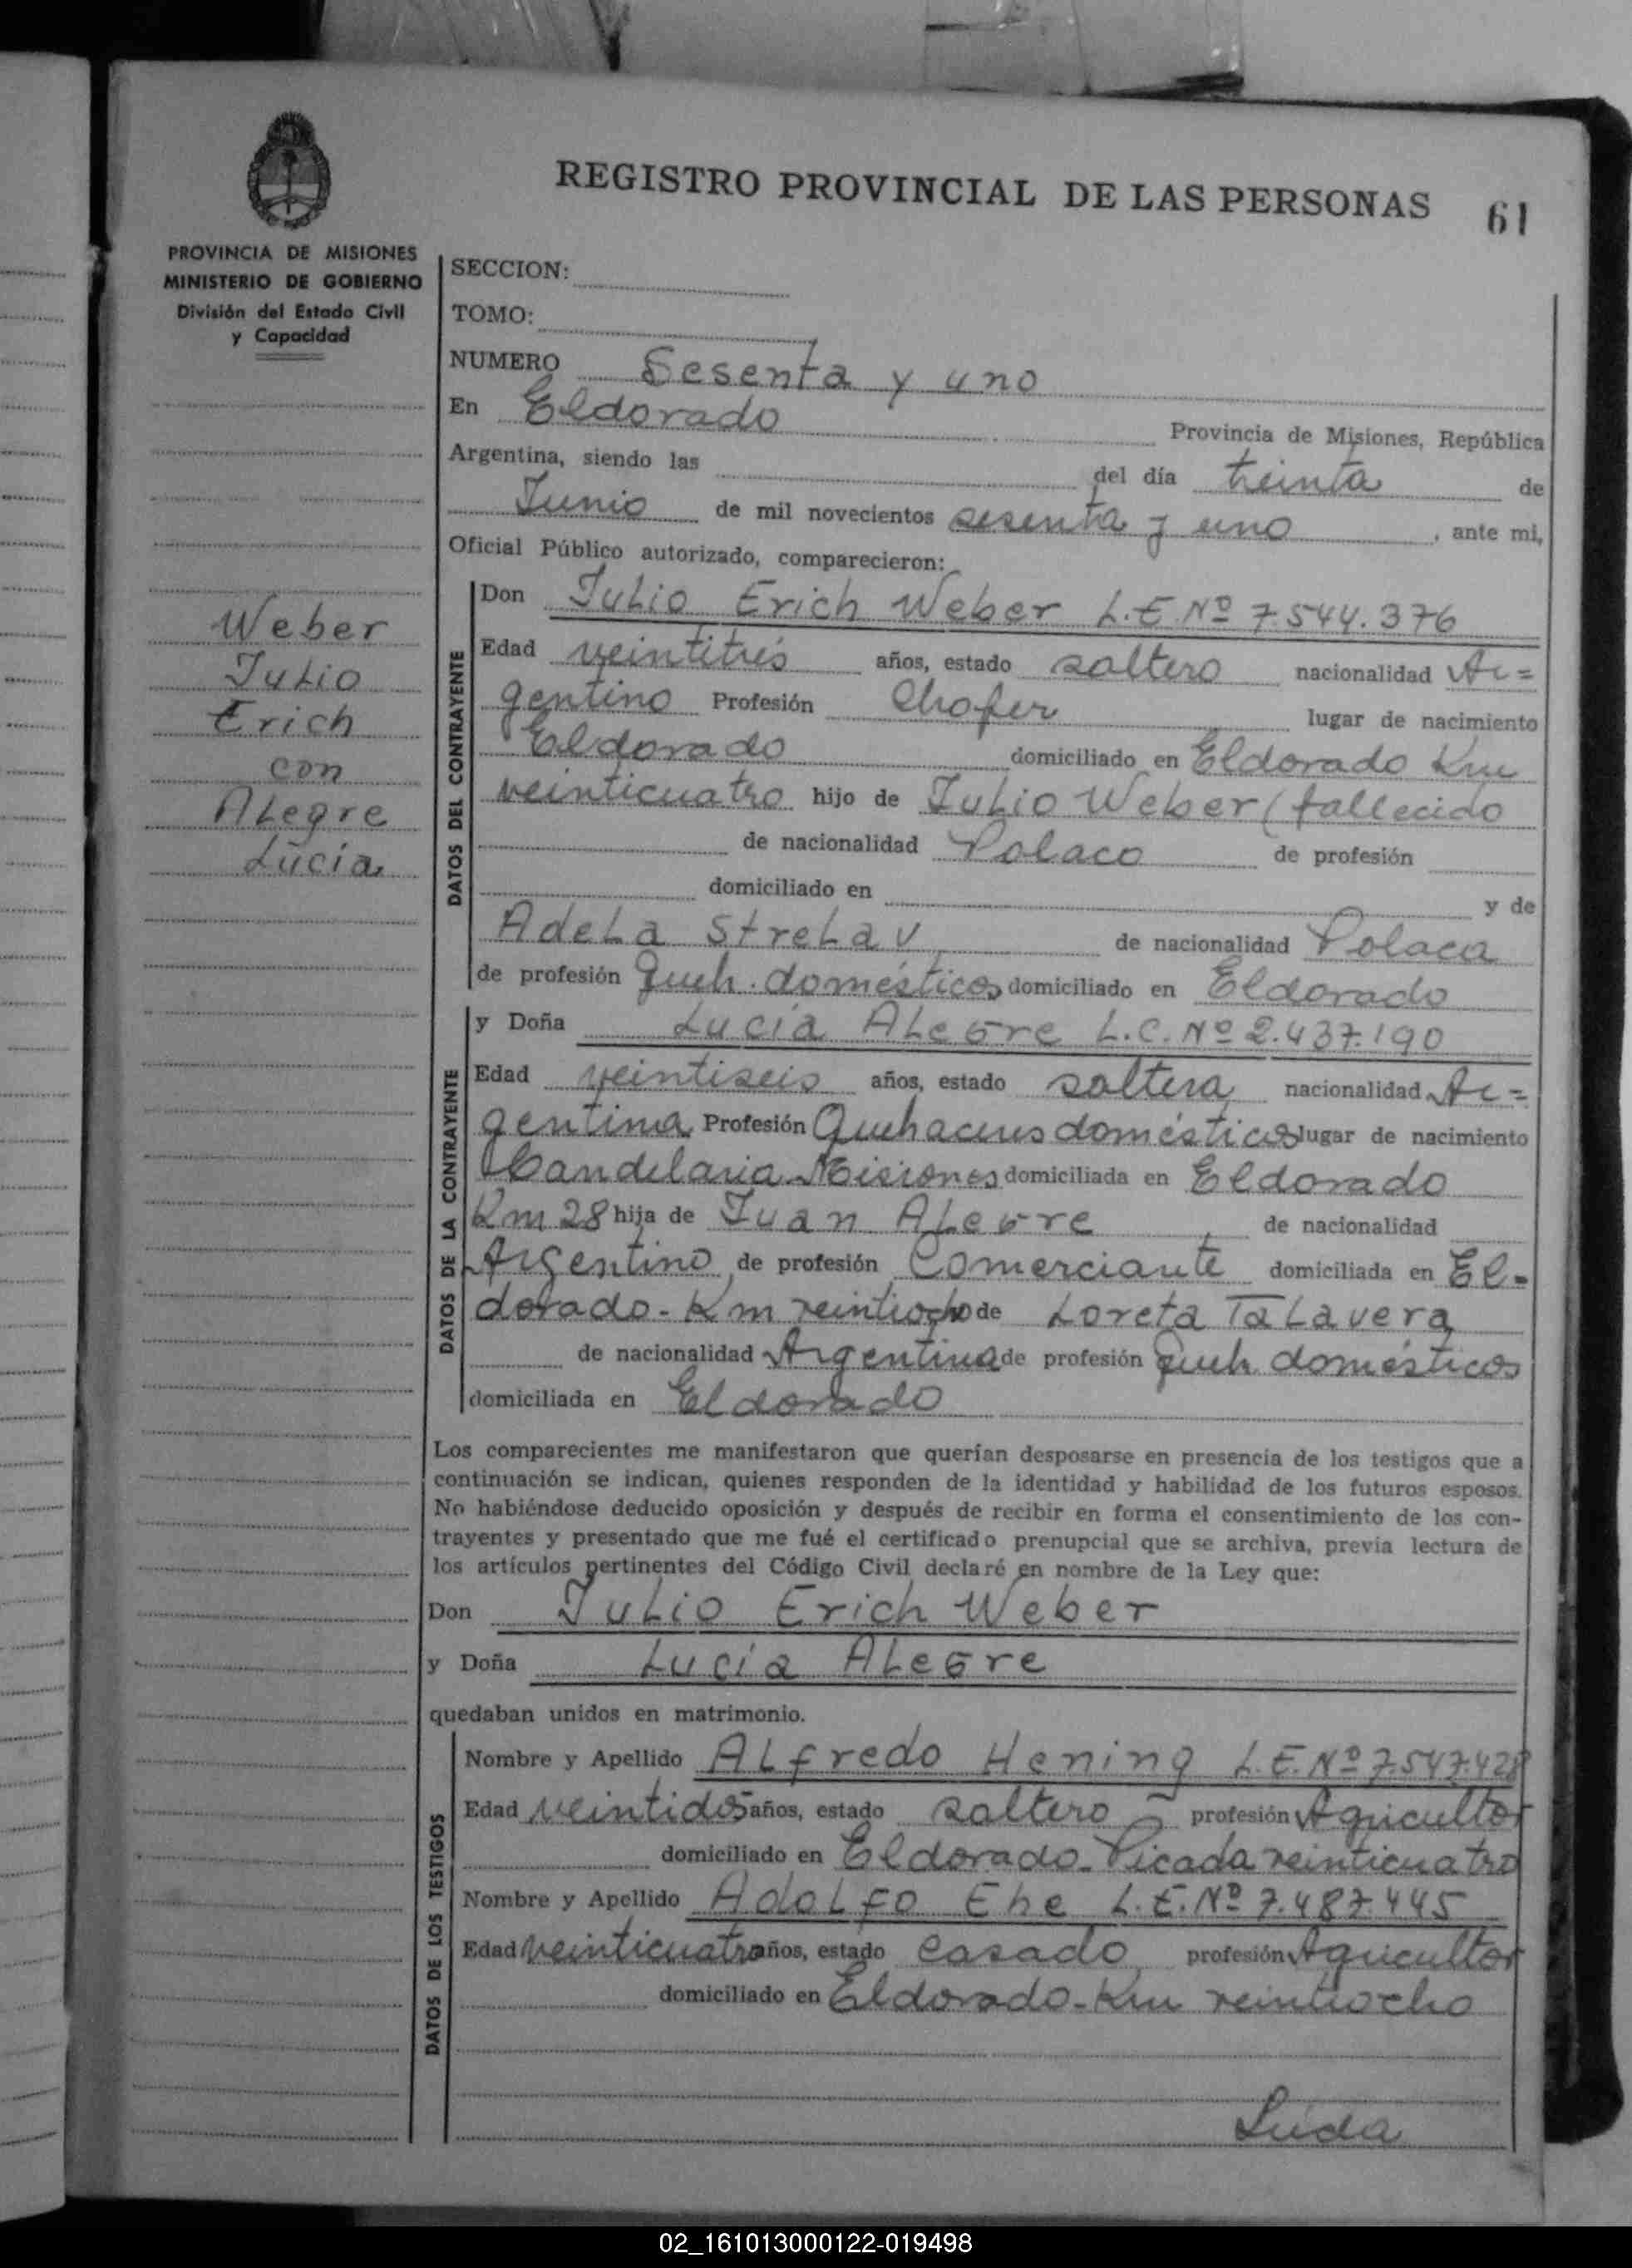 REGISTRO PROVINCIAL DE LAS PERSONAS 61
PROVINCIA DE MISIONES
MINISTERIO DE GOBIERNO
División del Estado Civil
y Capacidad
SECCION:
TOMO:
NUMERO Sesenta y uno
En Eldorado Provincia de Misiones, República
Argentina, siendo las del día treinta de
Junio de mil novecientos sesenta y uno, ante mi,
Oficial Público autorizado, comparecieron:
Weber
Julio
Erich
con
Alegre
Lucía
DATOS DEL CONTRAYENTE
Don Julio Erich Weber L.E. Nº 7.544.376
Edad veintitrés años, estado soltero nacionalidad Ar=
gentino Profesión Chofer lugar de nacimiento
Eldorado domiciliado en Eldorado Km
veinticuatro hijo de Julio Weber (fallecido
de nacionalidad Polaco de profesión
domiciliado en y de
Adela Strelav de nacionalidad Polaca
de profesión Queh. domésticos domiciliado en Eldorado
DATOS DE LA CONTRAYENTE
y Doña Lucía Alegre L.C. Nº 2.437.190
Edad veintiseis años, estado soltera nacionalidad Ar=
gentina Profesión Quehaceres domésticos lugar de nacimiento
Candelaria Misiones domiciliada en Eldorado
Km 28 hija de Juan Alegre de nacionalidad
Argentino de profesión Comerciante domiciliada en El-
dorado - Km veintiocho de Loreta Talavera
de nacionalidad Argentina de profesión queh. domésticos
domiciliada en Eldorado
Los comparecientes me manifestaron que querían desposarse en presencia de los testigos que a
continuación se indican, quienes responden de la identidad y habilidad de los futuros esposos.
No habiéndose deducido oposición y después de recibir en forma el consentimiento de los con-
trayentes y presentado que me fué el certificado prenupcial que se archiva, previa lectura de
los artículos pertinentes del Código Civil declaré en nombre de la Ley que:
Don Julio Erich Weber
y Doña Lucía Alegre
quedaban unidos en matrimonio.
DATOS DE LOS TESTIGOS
Nombre y Apellido Alfredo Hening L.E. Nº 7.547.428
Edad veintidos años, estado soltero profesión Agricultor
domiciliado en Eldorado - Picada veinticuatro
Nombre y Apellido Adolfo Ehe L.E. Nº 7.487.445
Edad veinticuatro años, estado casado profesión Agricultor
domiciliado en Eldorado - Km veintiocho
02_161013000122-019498